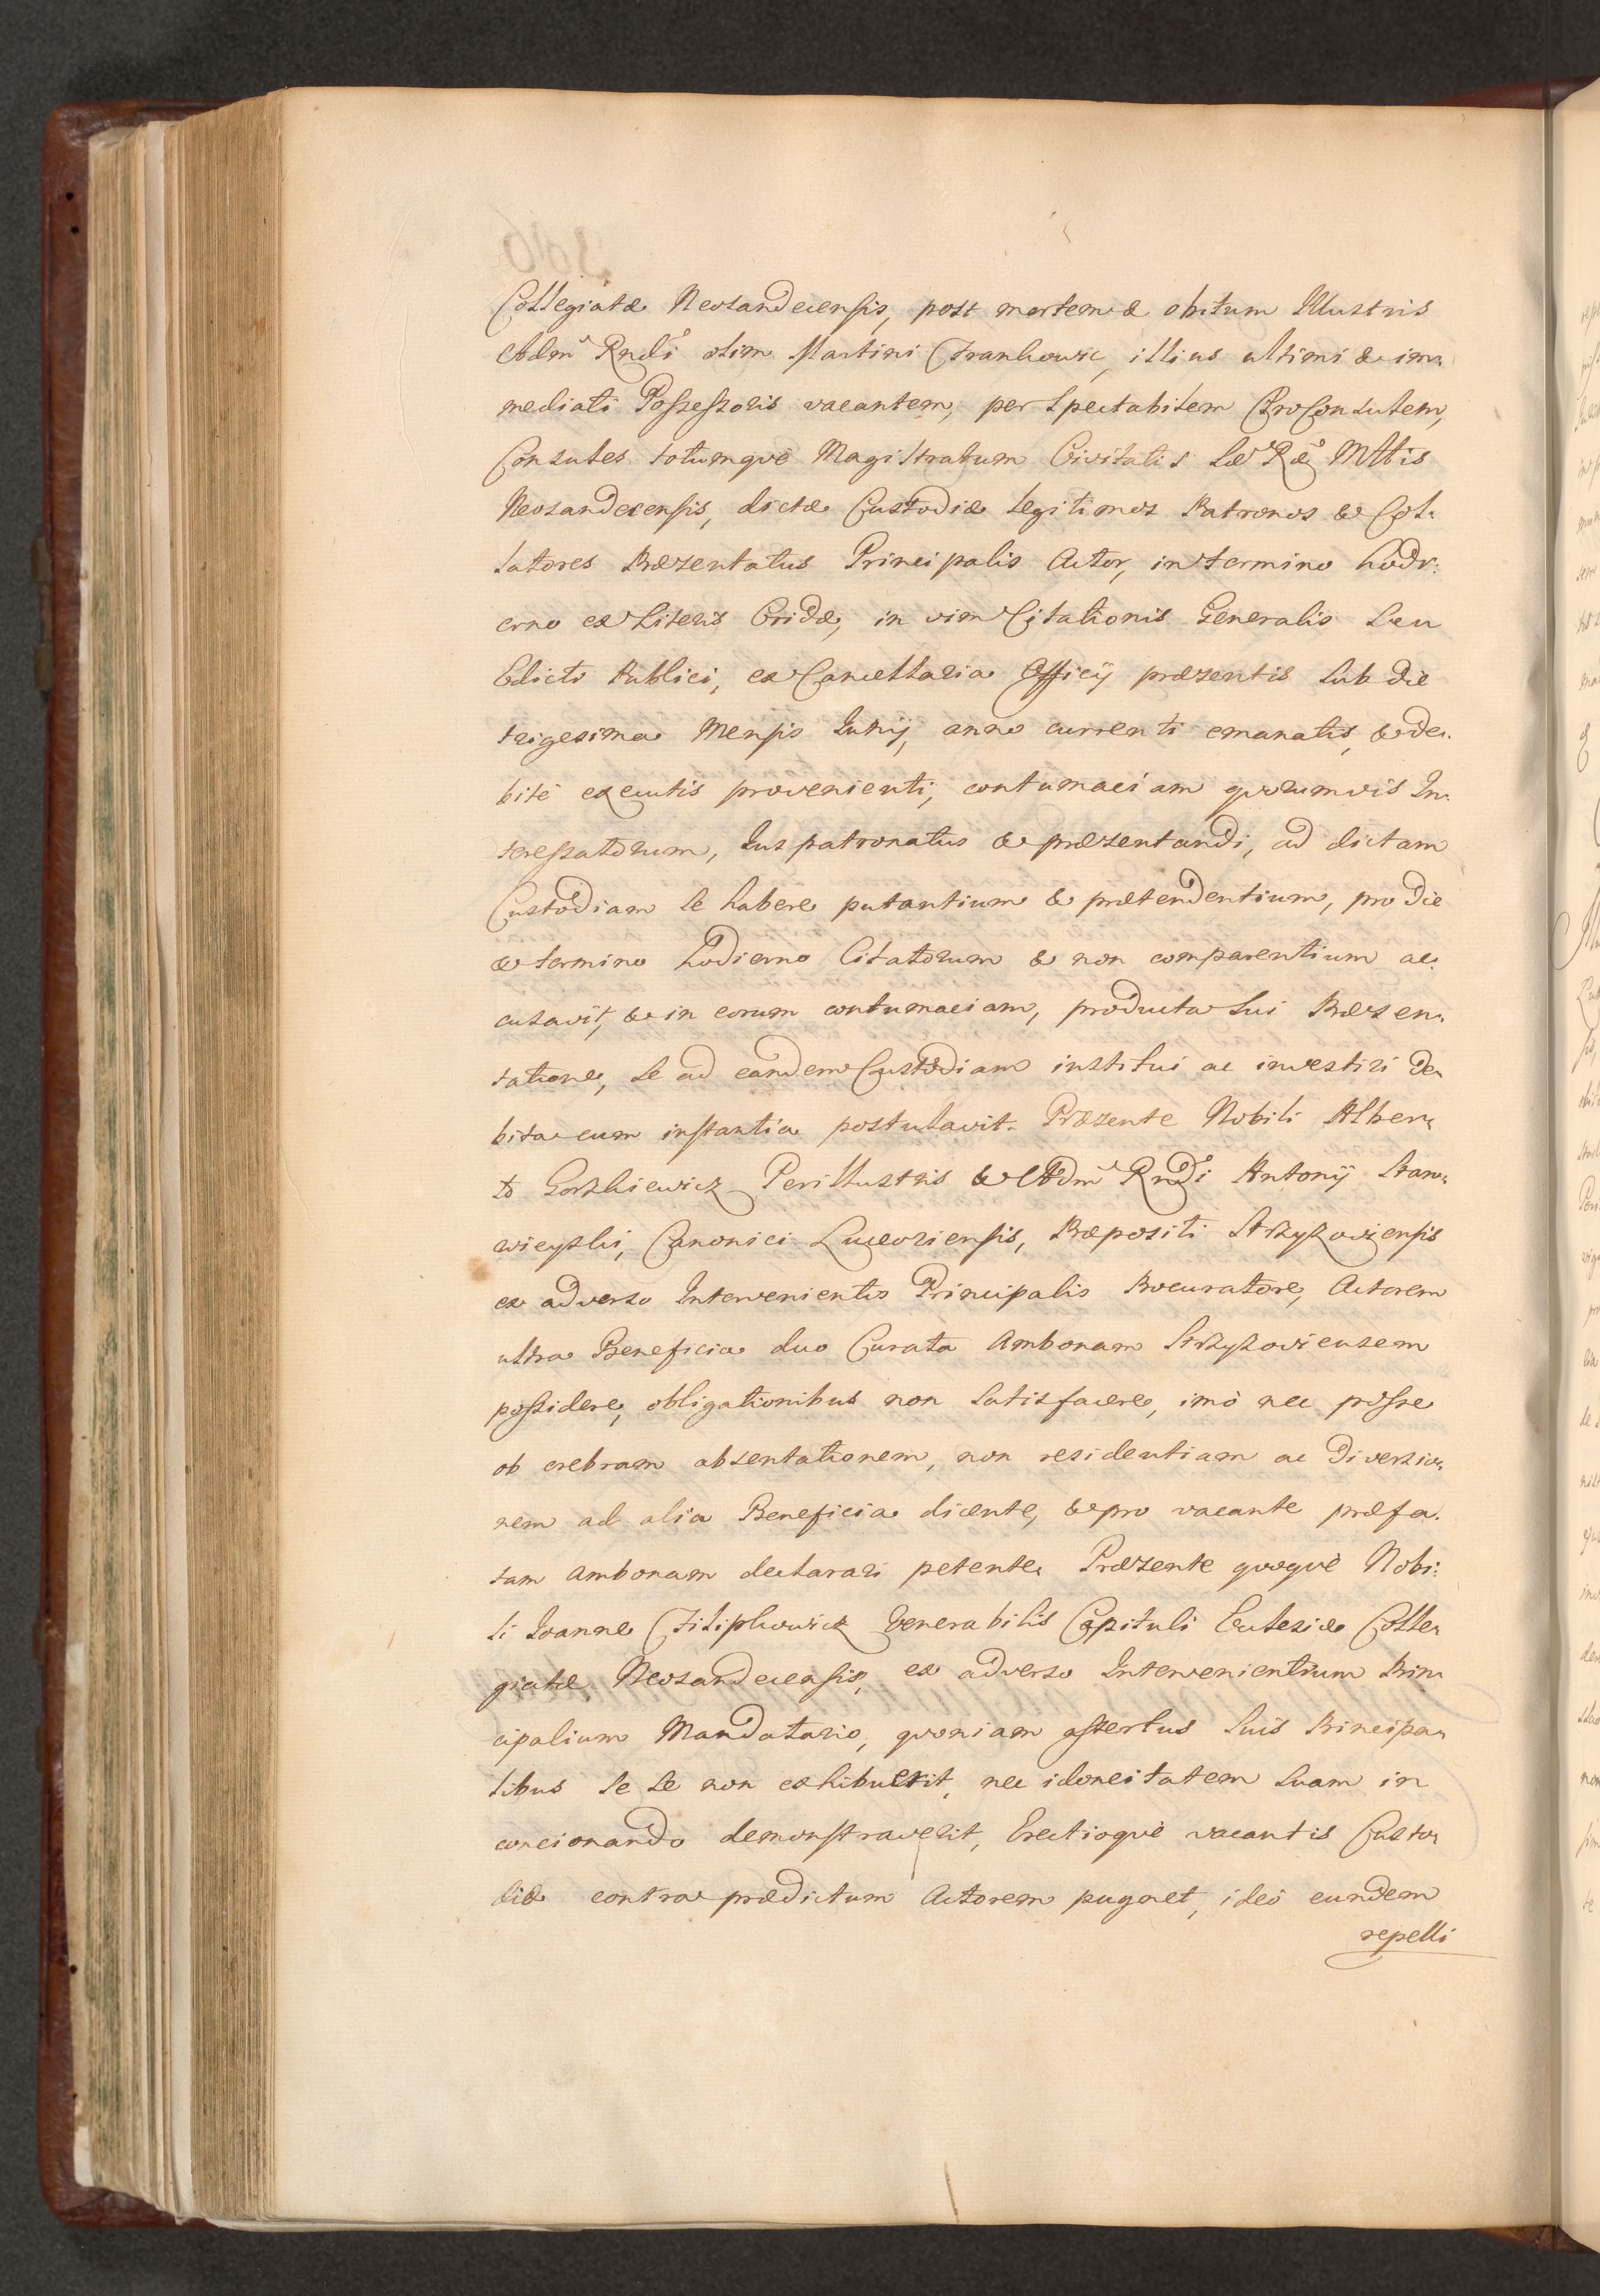 Collegiatæ Neosandecensis, post mortem & obitum Illustris
Admõ Rndĩ olim Martini Frankowic, illius ultimi & im-
mediati Possessoris vacantem, per Spectabilem ProConsulem,
Consules totumqvè Magistratum Civitatis Sæ Ræ Mttis
Neosandecensis, dictæ Custodiæ legitimos Patronos & Col-
latores Præsentatus Principalis Actor, in termino hodi-
erno ex Literis Cridæ, in vim Citationis Generalis Seu
Edicti Publici, ex Cancellaria Officij præsentis Sub die
trigesima Mensis Junij, anno currenti emanatis, & de-
bitè executis provenienti, contumaciam qvorumvis In-
teressatorum, Jus patronatus & præsentandi, ad dictam
Custodiam Se habere putantium & prætendentium, pro die
& termino hodierno Citatorum & non comparentium ac-
cusavit, & in eorum contumaciam, producta Sui Præsen-
tatione, Se ad eandem Custodiam institui ac investiri de-
bita cum instantia postulavit. Præsente Nobili Alber-
to Gorzkiewicz Perillustris & Admõ Rndĩ Antonij Staro-
wieyski, Canonici Luceoriensis, Præpositi Strzyzoviensis
ex adverso Intervenientis Principalis Procuratore, Actorem
ultra Beneficia duo Curata Ambonam Strzyzoviensem
possidere, obligationibus non Satisfacere, imò nec posse
ob crebram absentationem, non residentiam ac diversio-
nem ad alia Beneficia dicente, & pro vacante præfa-
tam Ambonam declarari petente. Præsente qvoqvè Nobi-
li Joanne Filipkowicz Venerabilis Capituli Ecclesiæ Colle-
giatæ Neosandecensis, ex adverso Intervenientium Prin-
cipalium Mandatario, qvoniam assertus Suis Principa-
libus Se Se non exhibuerit, nec idoneitatem Suam in
concionando demonstraverit, Erectioqvè vacantis Custo-
diæ contra prædictum Actorem pugnet, ideò eundem
repelli